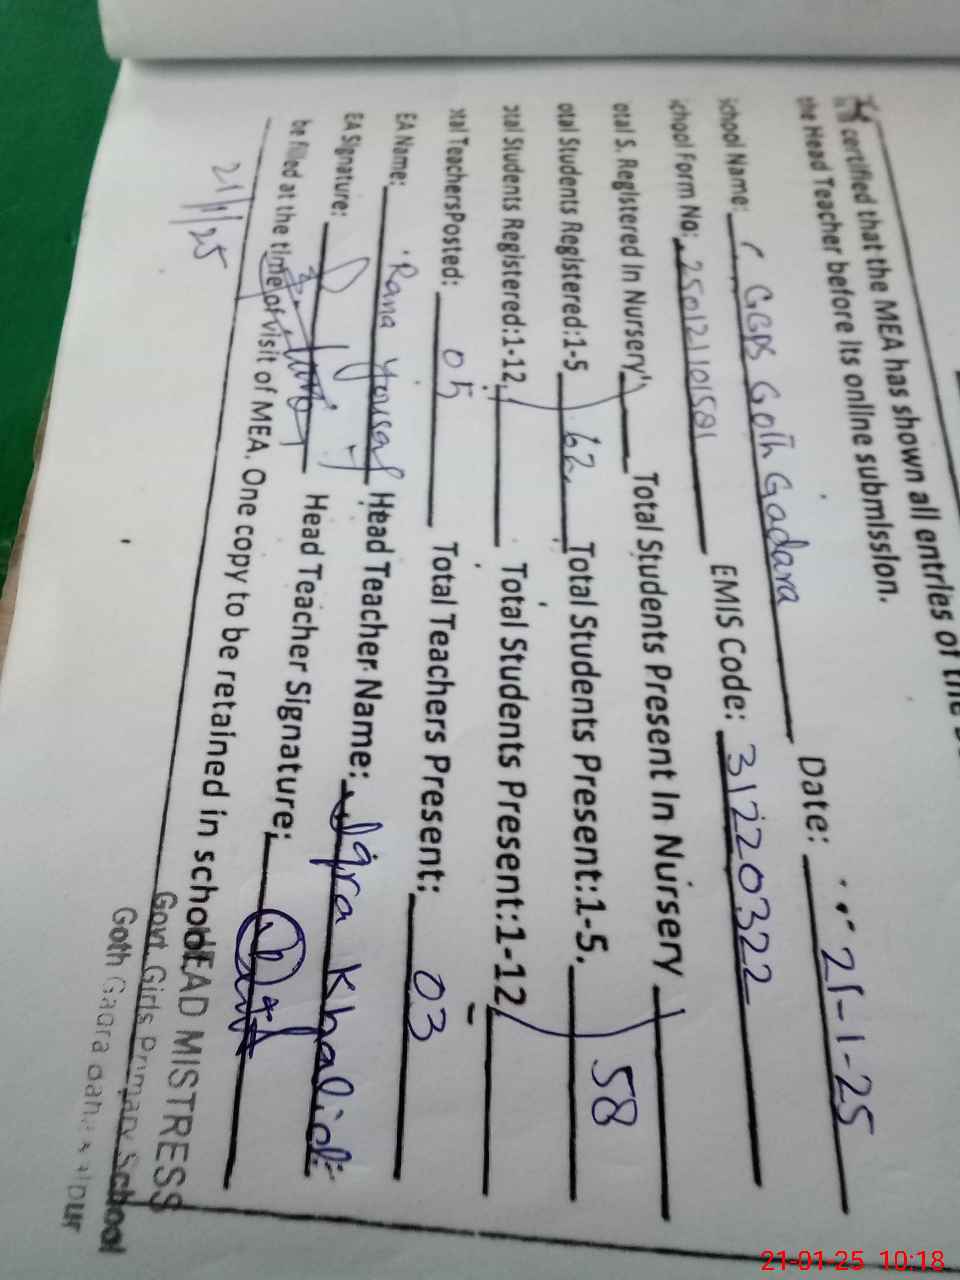 certified that the MEA has shown all entries of the
the Head Teacher before its online submission.
School Name: GGPS Goth Gadara Date: 21-1-25
School Form No: 250121101501 EMIS Code: 31220322
otal S. Registered In Nursery Total Students Present In Nursery
otal Students Registered:1-5 62 Total Students Present:1-5. 58
otal Students Registered:1-12 Total Students Present:1-12
otal TeachersPosted: 05 Total Teachers Present: 03
EA Name: Rana Yousaf Head Teacher Name: Iqra Khalid
EA Signature: Head Teacher Signature:
be filled at the time of visit of MEA. One copy to be retained in school
21/1/25
HEAD MISTRESS
Govt. Girls Primary School
Goth Gadra
21-01-25 10:18